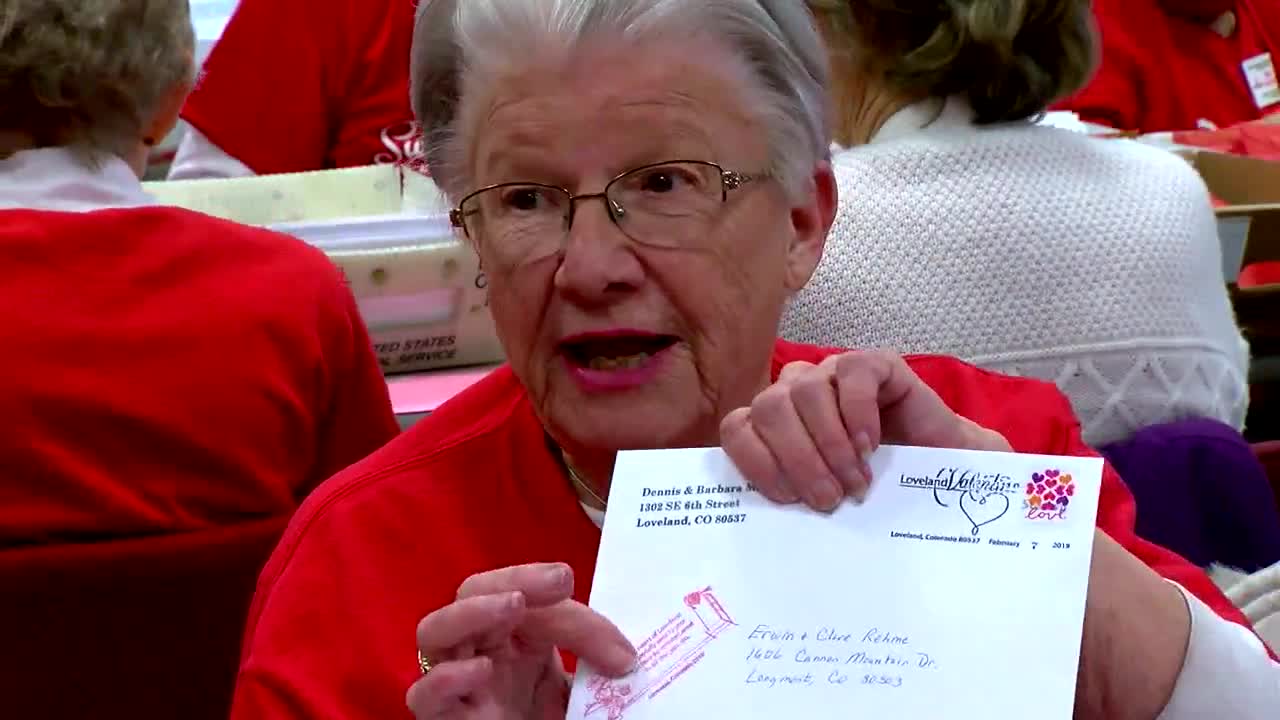 TED STATES
SERVICE
Dennis & Barbara
1302 SE 6th Street
Loveland, CO 80537
Loveland Valentine
love
Loveland, Colorado 80537 February 7 2019
Erwin & Clare Rehme
1606 Cannon Mountain Dr.
Longmont, Co 80503